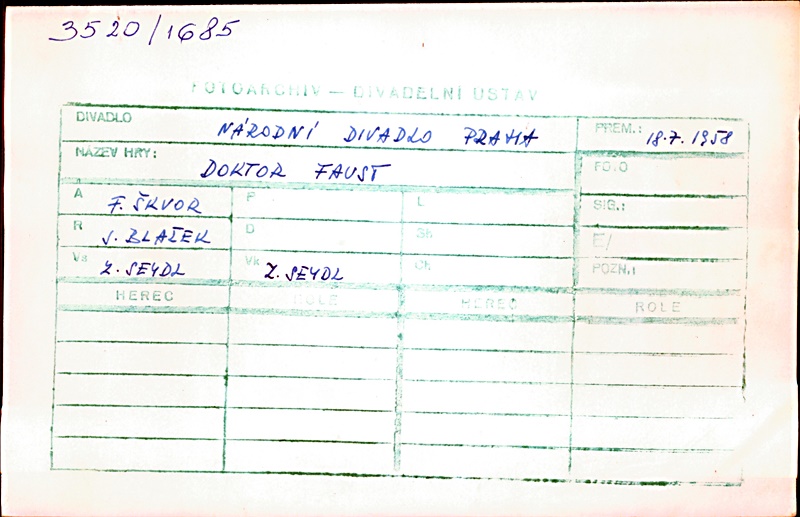 3520/1685
FOTOARCHIV — DIVADELNÍ ÚSTAV
DIVADLO NÁRODNÍ DIVADLO PRAHA PREM.: 18.7.1958
NÁZEV HRY: DOKTOR FAUST FOTO
A F. ŠKVOR P L SIG.:
R J. BLAŽEK D Sb E/
Vs Z. SEYDL Vk Z. SEYDL Ch POZN.:
HEREC ROLE HEREC ROLE